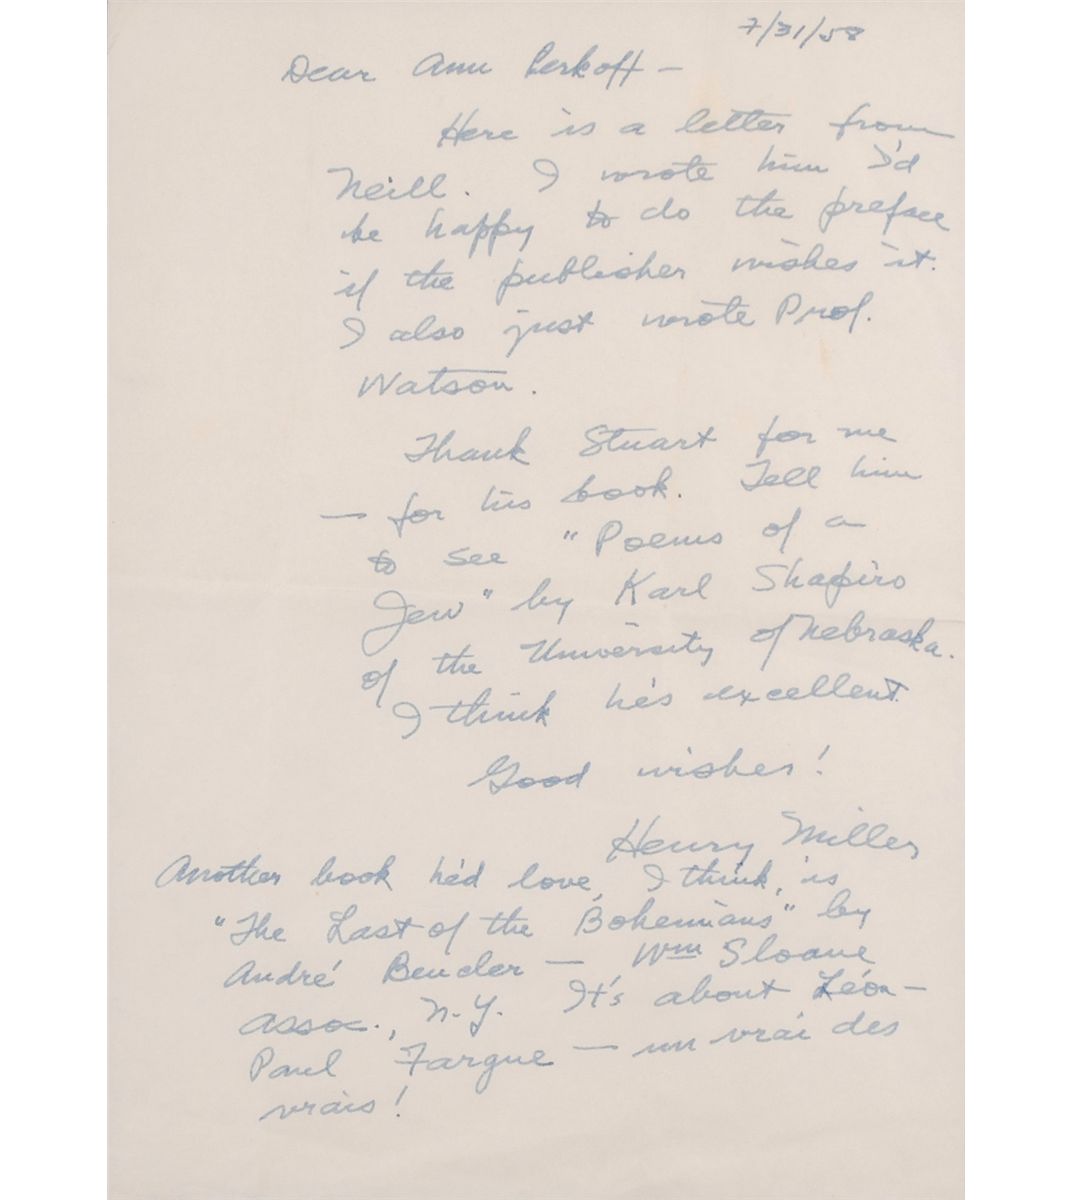 7/31/58
Dear Ann Perkoff —
Here is a letter from
Neill. I wrote him I'd
be happy to do the preface
if the publisher wishes it.
I also just wrote Prof.
Watson.
Thank Stuart for me
— for his book. Tell him
to see "Poems of a
Jew" by Karl Shapiro
of the University of Nebraska.
I think he's excellent.
Good wishes!
Henry Miller
Another book he'd love, I think, is
"The Last of the Bohemians" by
André Beucler — Wm Sloane
Assoc., N.Y. It's about Léon-
Paul Fargue — un vrai des
vrais!